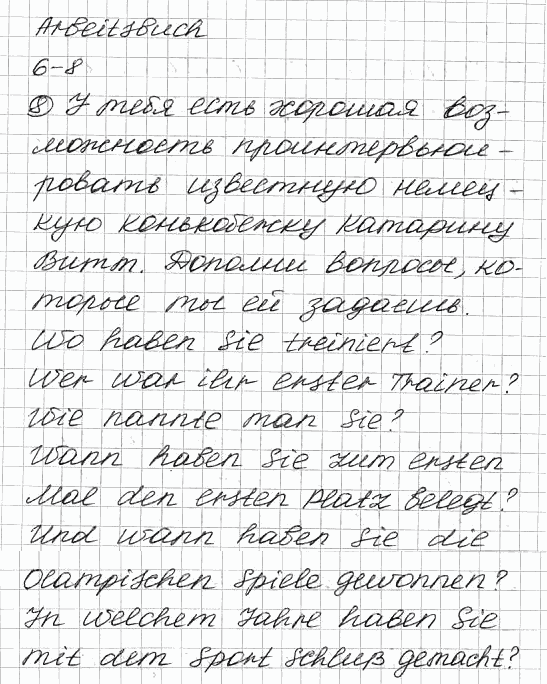 Arbeitsbuch
6-8
⑧ У тебя есть хорошая воз-
можность проинтервьюи-
ровать известную немец-
кую конькобежку Катарину
Витт. Дополни вопросы, ко-
торые ты ей задаешь.
Wo haben Sie treiniert?
Wer war ihr erster Trainer?
Wie nannte man Sie?
Wann haben Sie zum ersten
Mal den ersten Platz belegt?
Und wann haben Sie die
Olampischen Spiele gewonnen?
In welchem Jahre haben Sie
mit dem Sport Schluß gemacht?